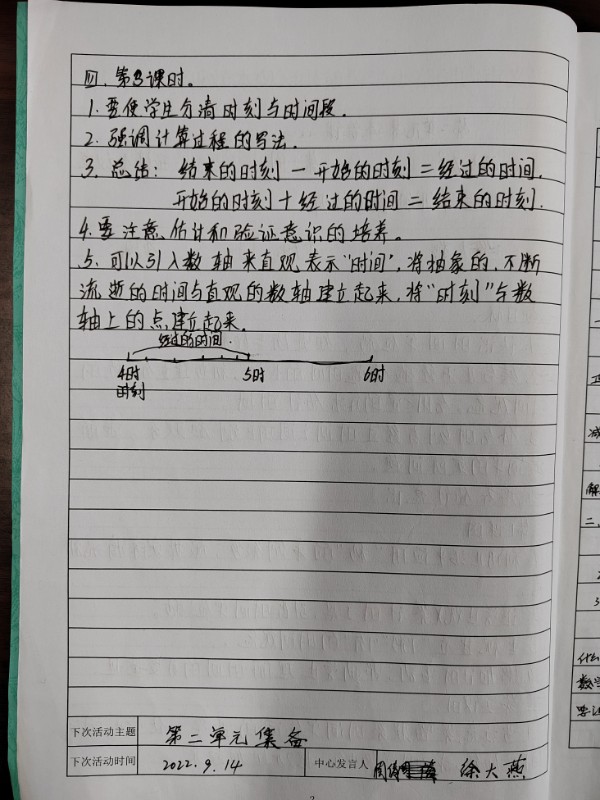 四、第3课时。
1. 要使学生分清时刻与时间段.
2. 强调计算过程的写法.
3. 总结: 结束的时刻－开始的时刻＝经过的时间.
开始的时刻＋经过的时间＝结束的时刻.
4. 要注意估计和验证意识的培养。
5. 可以引入数轴来直观表示“时间”, 将抽象的, 不断
流逝的时间与直观的数轴建立起来, 将“时刻”与数
轴上的点建立起来.
经过的时间
4时 5时 6时
时刻
下次活动主题 第二单元集备
下次活动时间 2022.9.14 中心发言人 徐大燕
2